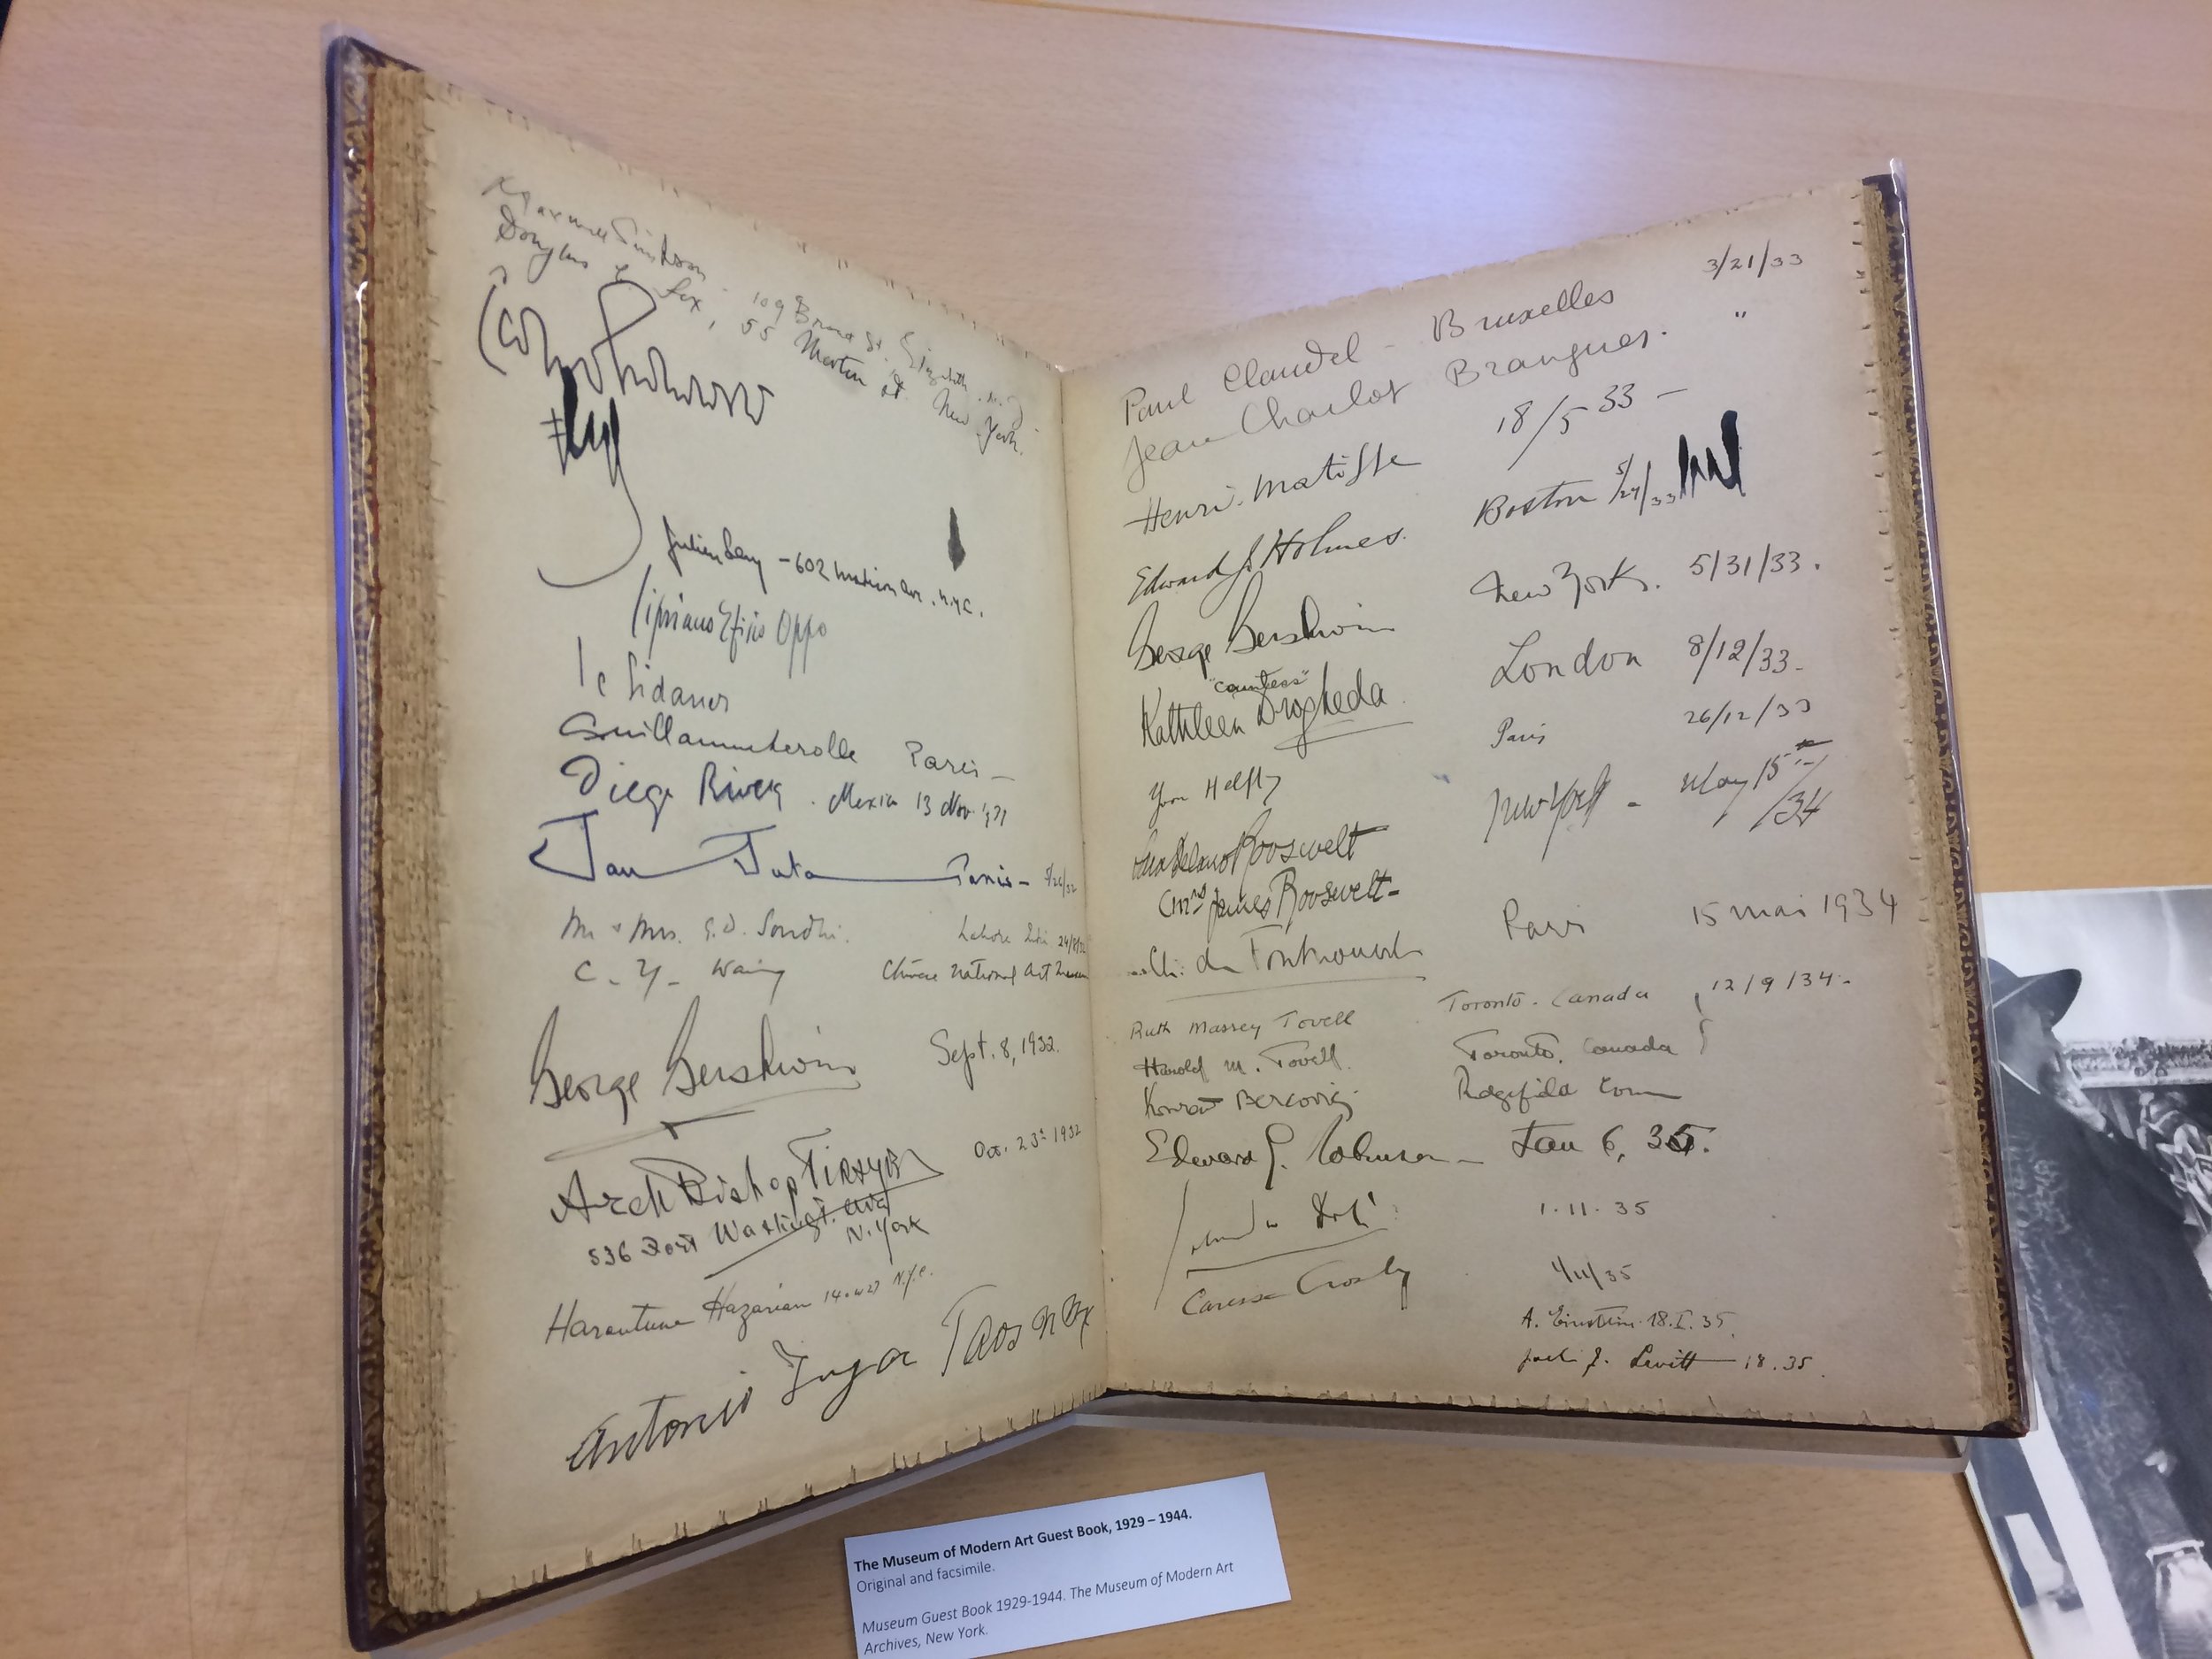 Douglas Fox, 55 Morton St. New York.
Julien Levy – 602 Madison Ave. N.Y.C.
Cipriano Efisio Oppo
Le Sidaner
Guillaume Lerolle Paris –
Diego Rivera . Mexico 13 Nov. '31
Jan Juta Paris – 8/26/32
Mr & Mrs. G.D. Sondhi. Lahore
C. Y. Wang Chinese National Art Museum
George Gershwin Sept. 8, 1932.
ArchBishop Tirayr Oct. 23 1932
536 Fort Washingt. Ave
N. York
Harantune Hazarian N.Y.C.
Antonio Taos N Mex
Paul Claudel – Bruxelles 3/21/33
Jean Charlot Brangues. "
Henri. Matisse 18/5 33 –
Edward J. Holmes. Boston 5/24/33
George Gershwin New York. 5/31/33.
"Countess"
Kathleen Drogheda. London 8/12/33.
Yvon Helft Paris 26/12/33
Sara Delano Roosevelt New York – May 15th/34
(Mrs James Roosevelt–
Ch. de Paris 15 mai 1934
Ruth Massey Tovell Toronto. Canada 12/9/34.
Harold M. Tovell. Toronto. Canada
Konrad Bercovici Ridgefield Conn
Edward G. Robinson – Jan 6, 35.
1.11.35
Caresse Crosby 1/11/35
A. Einstein. 18.I.35.
J. Levitt 18.35.
The Museum of Modern Art Guest Book, 1929 – 1944.
Original and facsimile.
Museum Guest Book 1929-1944. The Museum of Modern Art
Archives, New York.